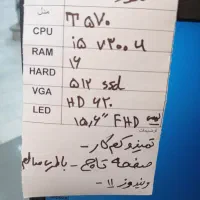 مدل T ۵۷۰
CPU i۵ ۷۳۰۰ u
RAM ۱۶
HARD ۵۱۲ ssd
VGA HD ۶۲۰
LED ۱۵,۶" FHD لمسی
توضیحات
تمیز و کم کار -
صفحه تاچ - باطری سالم
ویندوز ۱۱ -